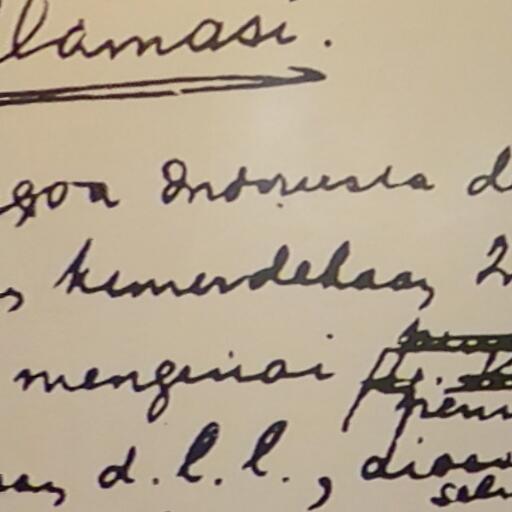 klamasi.
gsa Indonesia d
n kemerdekaan In
mengenai
pem
aan d.l.l., dise